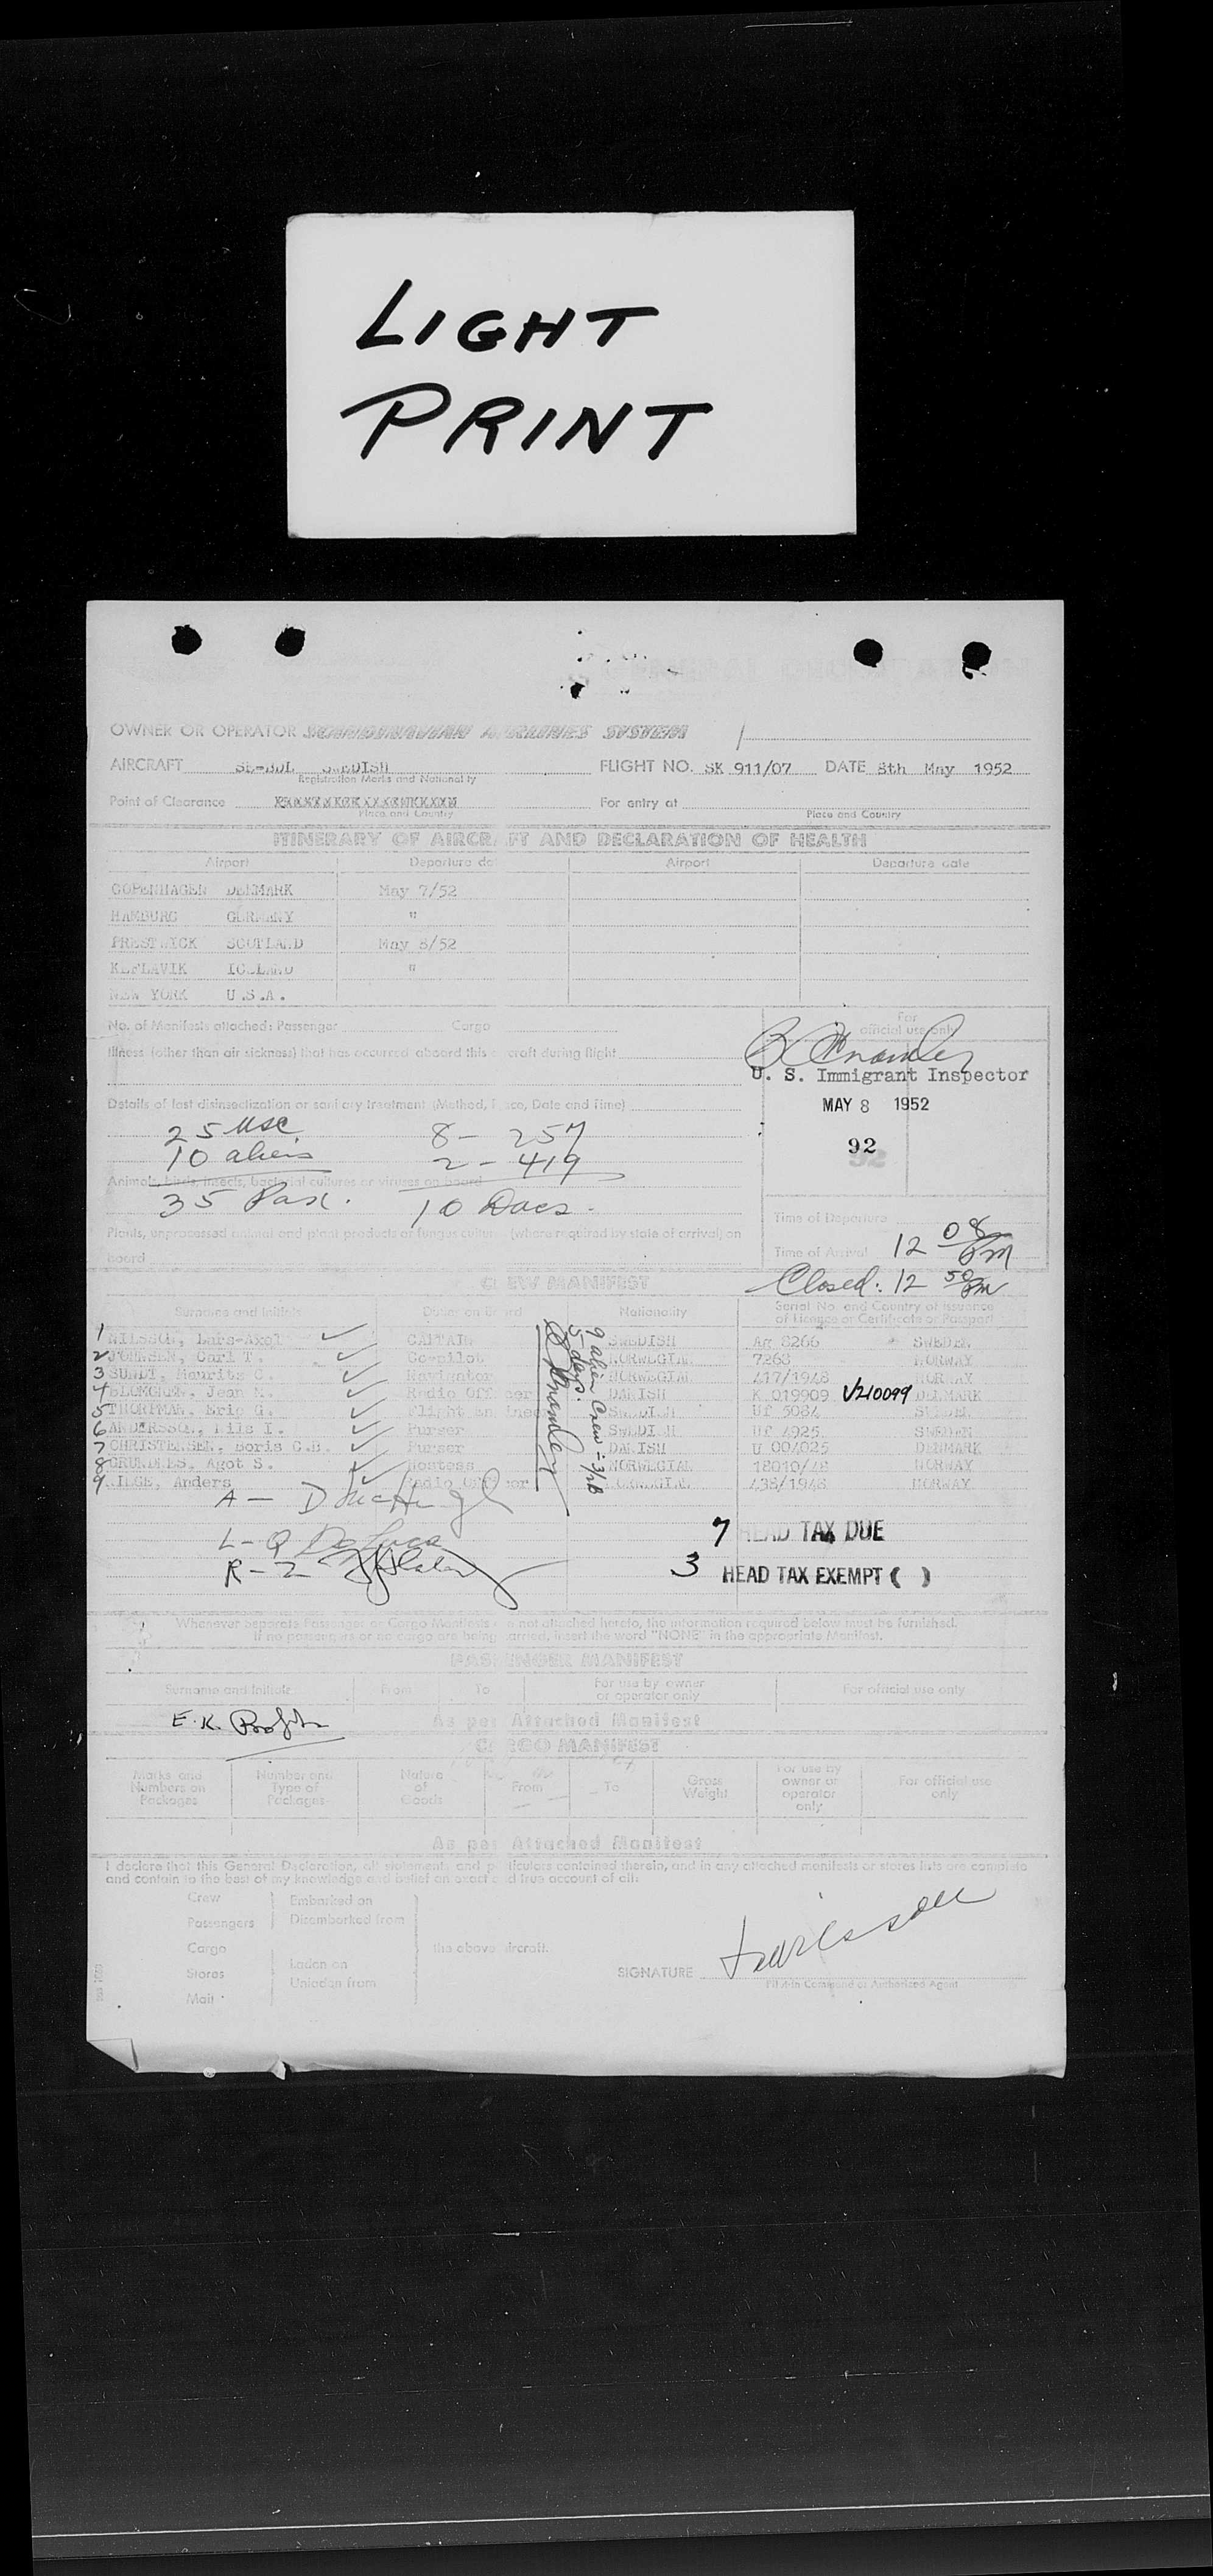 LIGHT
PRINT
OWNER OR OPERATOR SCANDINAVIAN AIRLINES SYSTEM
AIRCRAFT SE-BDL SWEDISH FLIGHT NO. SK 911/07 DATE 8th May 1952
Registration Marks and Nationality
Point of Clearance For entry at
Place and Country Place and Country
ITINERARY OF AIRCRAFT AND DECLARATION OF HEALTH
Airport Departure date Airport Departure date
COPENHAGEN DENMARK May 7/52
HAMBURG GERMANY "
PRESTWICK SCOTLAND May 8/52
KEFLAVIK ICELAND "
NEW YORK U.S.A.
No. of Manifests attached: Passenger Cargo
For official use only
Illness (other than air sickness) that has occurred aboard this aircraft during flight
U. S. Immigrant Inspector
MAY 8 1952
92
Details of last disinsectization or sanitary treatment (Method, Place, Date and Time)
25 USC 8 - 257
10 aliens 2 - 419
Animals, birds, insects, bacterial cultures or viruses on board
35 Pax. 10 Docs.
Plants, unprocessed animal and plant products or fungus cultures (where required by state of arrival) on
board
Time of Departure
Time of Arrival 12 08 PM
Closed: 12 50 PM
CREW MANIFEST
Surname and Initials Duties on Board Nationality Serial No. and Country of Issuance
of Licence or Certificate or Passport
1 NILSSON, Lars-Axel CAPTAIN SWEDISH An 8266 SWEDEN
2 JOHNSEN, Carl T. Co-pilot NORWEGIAN 7268 NORWAY
3 SUNDT, Maurits C. Navigator NORWEGIAN 417/1948 NORWAY
4 BLOMGREN, Jean M. Radio Officer DANISH K 019909 V210099 DENMARK
5 Eric G. Flight Engineer SWEDISH Uf 5084 SWEDEN
6 ANDERSSON, Nils I. Purser SWEDISH Uf 4925 SWEDEN
7 CHRISTENSEN, Boris C.B. Purser DANISH U 004025 DENMARK
8 Agot S. Hostess NORWEGIAN 18010/48 NORWAY
9 Anders Radio Officer NORWEGIAN 438/1948 NORWAY
9 alien Crew = 3/2B
5 days.
A -
L - 
R - 2
7 HEAD TAX DUE
3 HEAD TAX EXEMPT ( )
Whenever Separate Passenger or Cargo Manifests are not attached hereto, the information required below must be furnished.
If no passengers or no cargo are being carried, insert the word "NONE" in the appropriate Manifest.
PASSENGER MANIFEST
Surname and Initials From To For use by owner or operator only For official use only
E. K.
As per Attached Manifest
CARGO MANIFEST
Marks and Numbers on Packages Number and Type of Packages Nature of Goods From To Gross Weight For use by owner or operator only For official use only
As per Attached Manifest
I declare that this General Declaration, all statements and particulars contained therein, and in any attached manifests or stores lists are complete
and contain to the best of my knowledge and belief an exact and true account of all:
Crew Embarked on
Passengers Disembarked from
Cargo the above aircraft.
Stores Laden on
Unladen from
Mail
SIGNATURE
Pilot in Command or Authorized Agent